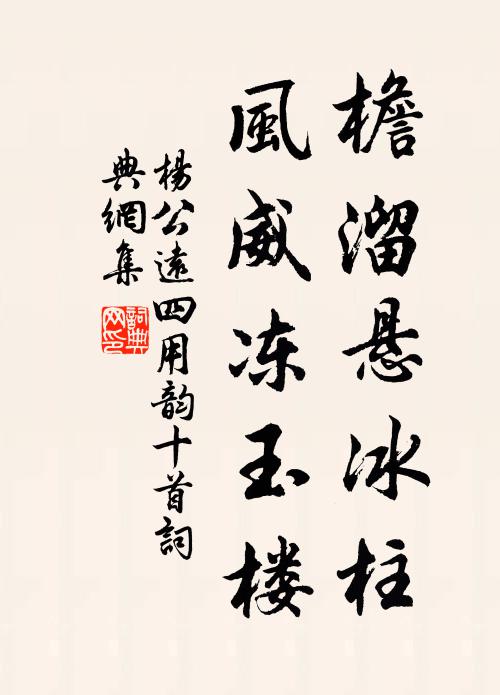 檐溜悬冰柱
風威冻玉楼
楊公遠四用韵十首詞
典網集
詞典
网印